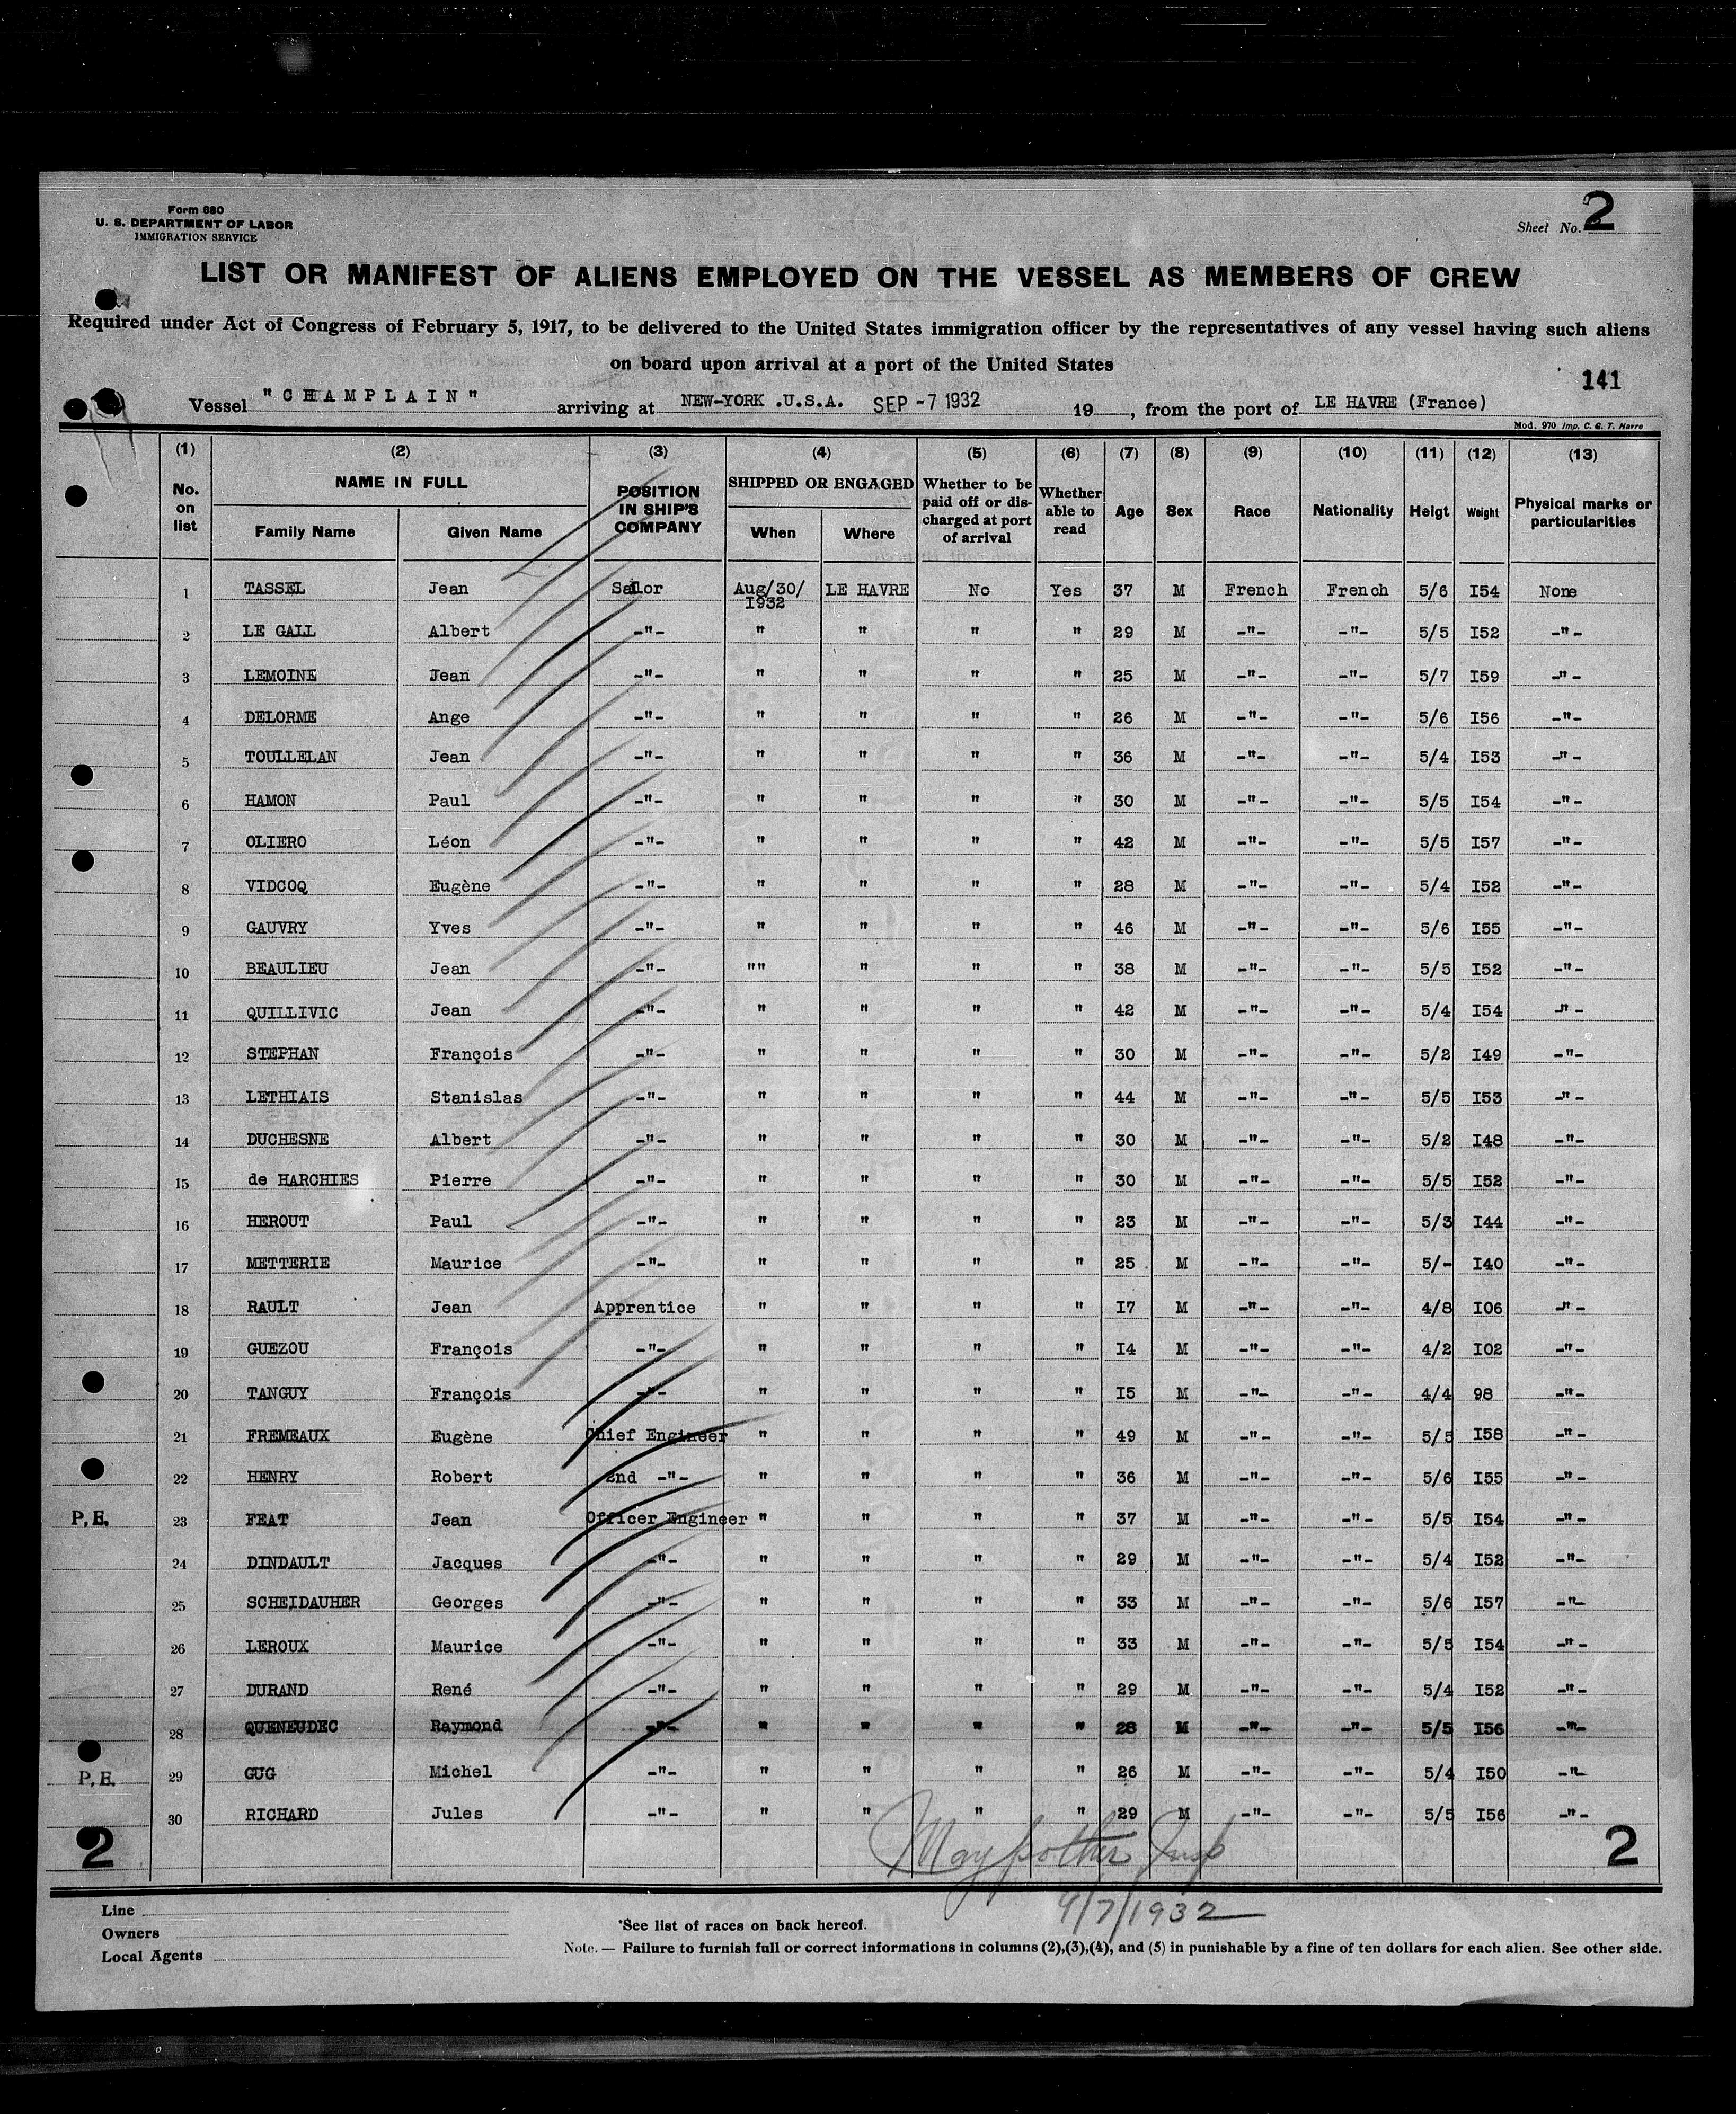 Form 680
U. S. DEPARTMENT OF LABOR
IMMIGRATION SERVICE
Sheet No. 2
LIST OR MANIFEST OF ALIENS EMPLOYED ON THE VESSEL AS MEMBERS OF CREW
Required under Act of Congress of February 5, 1917, to be delivered to the United States immigration officer by the representatives of any vessel having such aliens
on board upon arrival at a port of the United States
141
Vessel "CHAMPLAIN" arriving at NEW-YORK .U.S.A. SEP -7 1932 19 , from the port of LE HAVRE (France)
Mod. 970 Imp. C. G. T. Havre
(1) (2) (3) (4) (5) (6) (7) (8) (9) (10) (11) (12) (13)
No. on list NAME IN FULL Family Name Given Name POSITION IN SHIP'S COMPANY SHIPPED OR ENGAGED When Where Whether to be paid off or discharged at port of arrival Whether able to read Age Sex Race Nationality Heigt Weight Physical marks or particularities
1 TASSEL Jean Sailor Aug/30/1932 LE HAVRE No Yes 37 M French French 5/6 I54 None
2 LE GALL Albert -"- " " " " 29 M -"- -"- 5/5 I52 -"-
3 LEMOINE Jean -"- " " " " 25 M -"- -"- 5/7 I59 -"-
4 DELORME Ange -"- " " " " 26 M -"- -"- 5/6 I56 -"-
5 TOULLELAN Jean -"- " " " " 36 M -"- -"- 5/4 I53 -"-
6 HAMON Paul -"- " " " " 30 M -"- -"- 5/5 I54 -"-
7 OLIERO Léon -"- " " " " 42 M -"- -"- 5/5 I57 -"-
8 VIDCOQ Eugène -"- " " " " 28 M -"- -"- 5/4 I52 -"-
9 GAUVRY Yves -"- " " " " 46 M -"- -"- 5/6 I55 -"-
10 BEAULIEU Jean -"- "" " " " 38 M -"- -"- 5/5 I52 -"-
11 QUILLIVIC Jean -"- " " " " 42 M -"- -"- 5/4 I54 -"-
12 STEPHAN François -"- " " " " 30 M -"- -"- 5/2 I49 -"-
13 LETHIAIS Stanislas -"- " " " " 44 M -"- -"- 5/5 I53 -"-
14 DUCHESNE Albert -"- " " " " 30 M -"- -"- 5/2 I48 -"-
15 de HARCHIES Pierre -"- " " " " 30 M -"- -"- 5/5 I52 -"-
16 HEROUT Paul -"- " " " " 23 M -"- -"- 5/3 I44 -"-
17 METTERIE Maurice -"- " " " " 25 M -"- -"- 5/- I40 -"-
18 RAULT Jean Apprentice " " " " I7 M -"- -"- 4/8 I06 -"-
19 GUEZOU François -"- " " " " I4 M -"- -"- 4/2 I02 -"-
20 TANGUY François -"- " " " " I5 M -"- -"- 4/4 98 -"-
21 FREMEAUX Eugène Chief Engineer " " " " 49 M -"- -"- 5/5 I58 -"-
22 HENRY Robert 2nd -"- " " " " 36 M -"- -"- 5/6 I55 -"-
P.E. 23 FEAT Jean Officer Engineer " " " " 37 M -"- -"- 5/5 I54 -"-
24 DINDAULT Jacques -"- " " " " 29 M -"- -"- 5/4 I52 -"-
25 SCHEIDAUHER Georges -"- " " " " 33 M -"- -"- 5/6 I57 -"-
26 LEROUX Maurice -"- " " " " 33 M -"- -"- 5/5 I54 -"-
27 DURAND René -"- " " " " 29 M -"- -"- 5/4 I52 -"-
28 QUENEUDEC Raymond -"- " " " " 28 M -"- -"- 5/5 I56 -"-
P.E. 29 GUG Michel -"- " " " " 26 M -"- -"- 5/4 I50 -"-
30 RICHARD Jules -"- " " " " 29 M -"- -"- 5/5 I56 -"-
2 2
9/7/1932
Line
Owners
Local Agents
*See list of races on back hereof.
Note. — Failure to furnish full or correct informations in columns (2),(3),(4), and (5) in punishable by a fine of ten dollars for each alien. See other side.